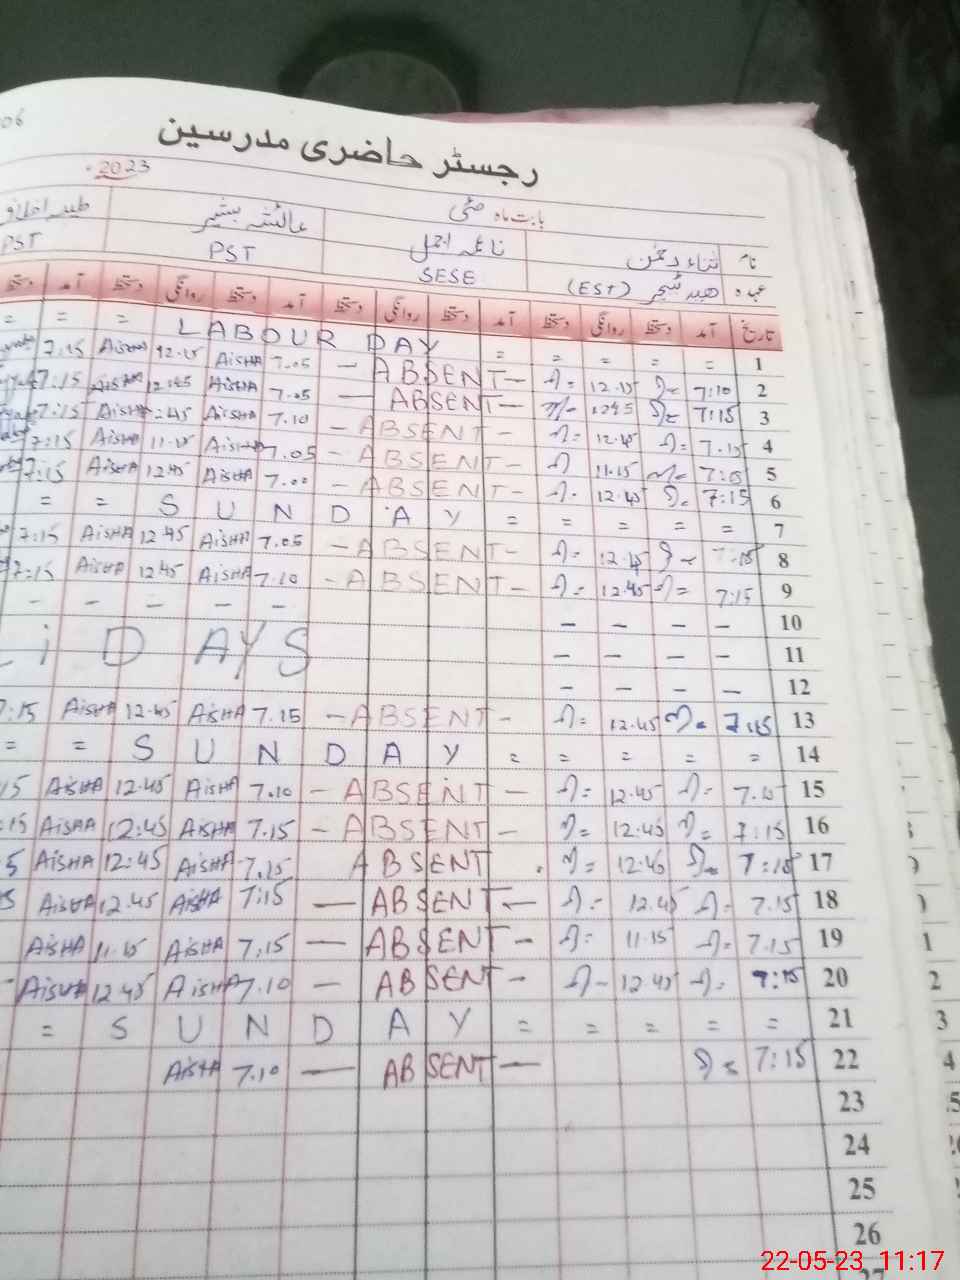 06
رجسٹر حاضری مدرسین
2023
بابت ماہ مئی
نام ثناء رحمٰن نائلہ اجمل عائشہ بشیر
عہدہ ہیڈ ٹیچر (EST) SESE PST PST
تاریخ آمد دستخط روانگی دستخط آمد دستخط روانگی دستخط آمد دستخط روانگی دستخط آمد
1 = = = = = LABOUR DAY = = =
2 7:10 12.45 - ABSENT - 7.05 AiSHA 12.45 AiSHA 7.15
3 7:15 1245 - ABSENT - 7.05 AiSHA 12.45 AiSHA 7:15
4 7.15 12.45 - ABSENT - 7.10 AiSHA :45 AiSHA 7:15
5 7:15 11.15 - ABSENT - 7.05 AiSHA 11.15 AiSHA 7:15
6 7:15 12.45 - ABSENT - 7.00 AiSHA 12.45 AiSHA 7:15
7 = = = = = SUNDAY = =
8 7:15 12.45 - ABSENT - 7.05 AiSHA 12.45 AiSHA 7:15
9 7:15 12.45 - ABSENT - 7.10 AiSHA 12.45 AiSHA 7:15
10 - - - - - - - - -
11 - - - - i DAYS
12 - - - -
13 7:15 12.45 - ABSENT - 7.15 AiSHA 12.45 AiSHA 7:15
14 = = = = = SUNDAY = =
15 7.15 12.45 - ABSENT - 7.10 AiSHA 12.45 AiSHA 15
16 7:15 12.45 - ABSENT - 7.15 AiSHA 12:45 AiSHA :15
17 7:15 12.45 ABSENT 7.15 AiSHA 12:45 AiSHA 5
18 7.15 12.45 - ABSENT - 7:15 AiSHA 12.45 AiSHA 5
19 7.15 11.15 - ABSENT - 7.15 AiSHA 11.15 AiSHA
20 7:15 12.45 - ABSENT - 7.10 AiSHA 12.45 AiSHA
21 = = = = = SUNDAY =
22 7:15 - ABSENT - 7.10 AiSHA
23
24
25
26
27
22-05-23 11:17